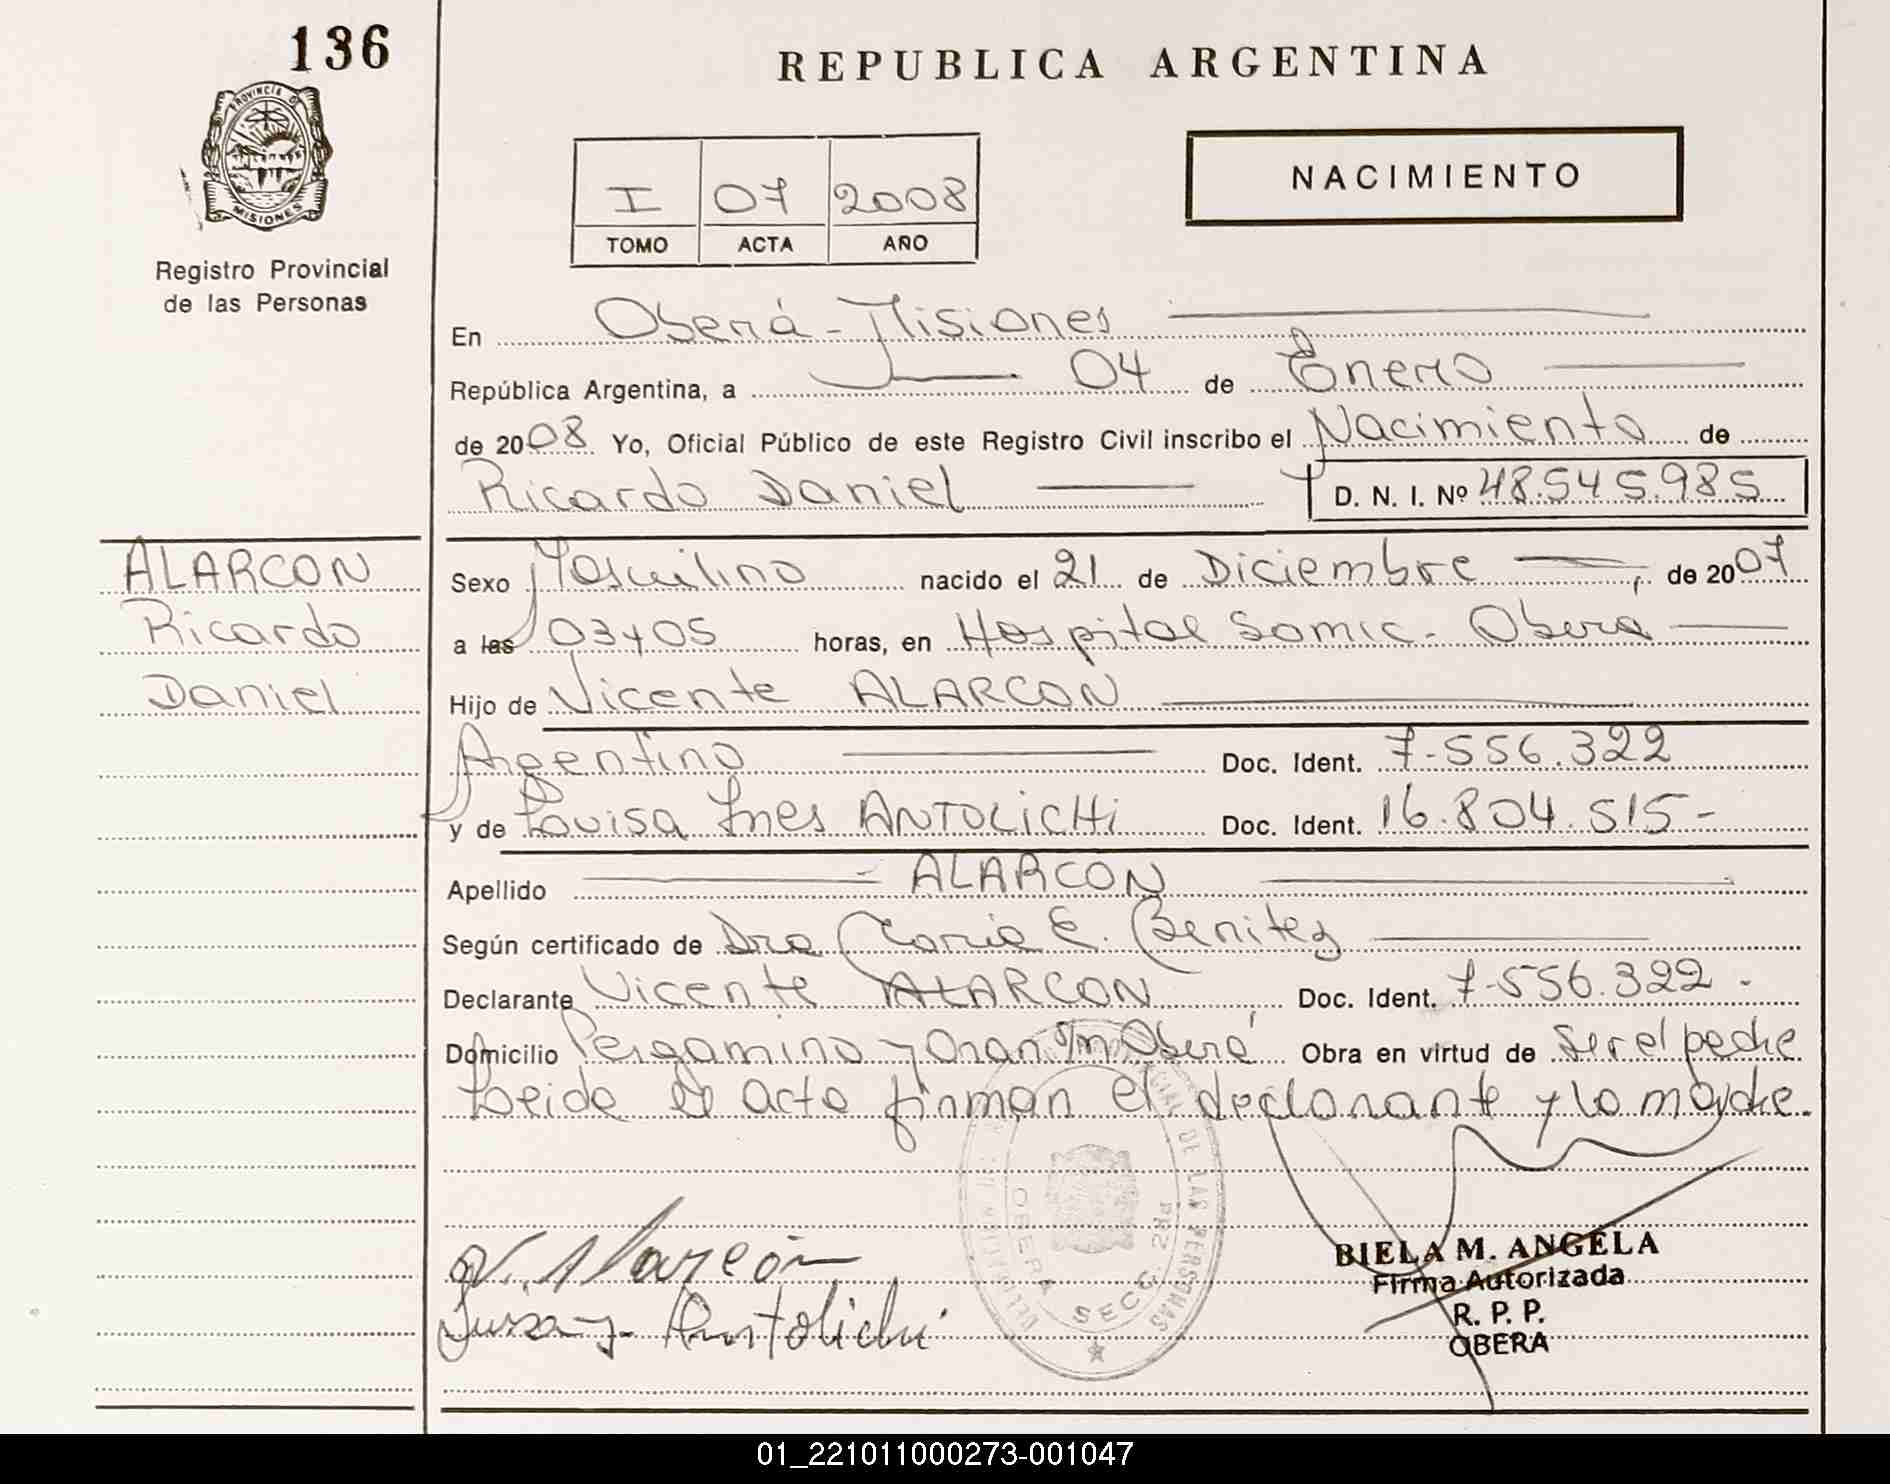 136
PROVINCIA DE
MISIONES
Registro Provincial
de las Personas
REPUBLICA ARGENTINA
I 07 2008
TOMO ACTA AÑO
NACIMIENTO
En Oberá - Misiones
República Argentina, a 04 de Enero
de 2008 Yo, Oficial Público de este Registro Civil inscribo el Nacimiento de
Ricardo Daniel D. N. I. Nº 48.545.985
ALARCON
Ricardo
Daniel
Sexo Masculino nacido el 21 de Diciembre, de 2007
a las 03y05 horas, en Hospital Samic - Obera
Hijo de Vicente ALARCON
Argentino Doc. Ident. 7.556.322
y de Luisa Ines ANTOLICHI Doc. Ident. 16.804.515-
Apellido ALARCON
Según certificado de Dra Maria E. Benitez
Declarante Vicente ALARCON Doc. Ident. 7.556.322-
Domicilio Pergamino y Oran S/n Oberá Obra en virtud de Ser el padre
Leida el acta firman el declarante y la madre.
V. Alarcón
Luisa I. Antolichi
DE LAS PERSONAS
OBERA SECC. 2da
BIELA M. ANGELA
Firma Autorizada
R. P. P.
OBERA
01_221011000273-001047